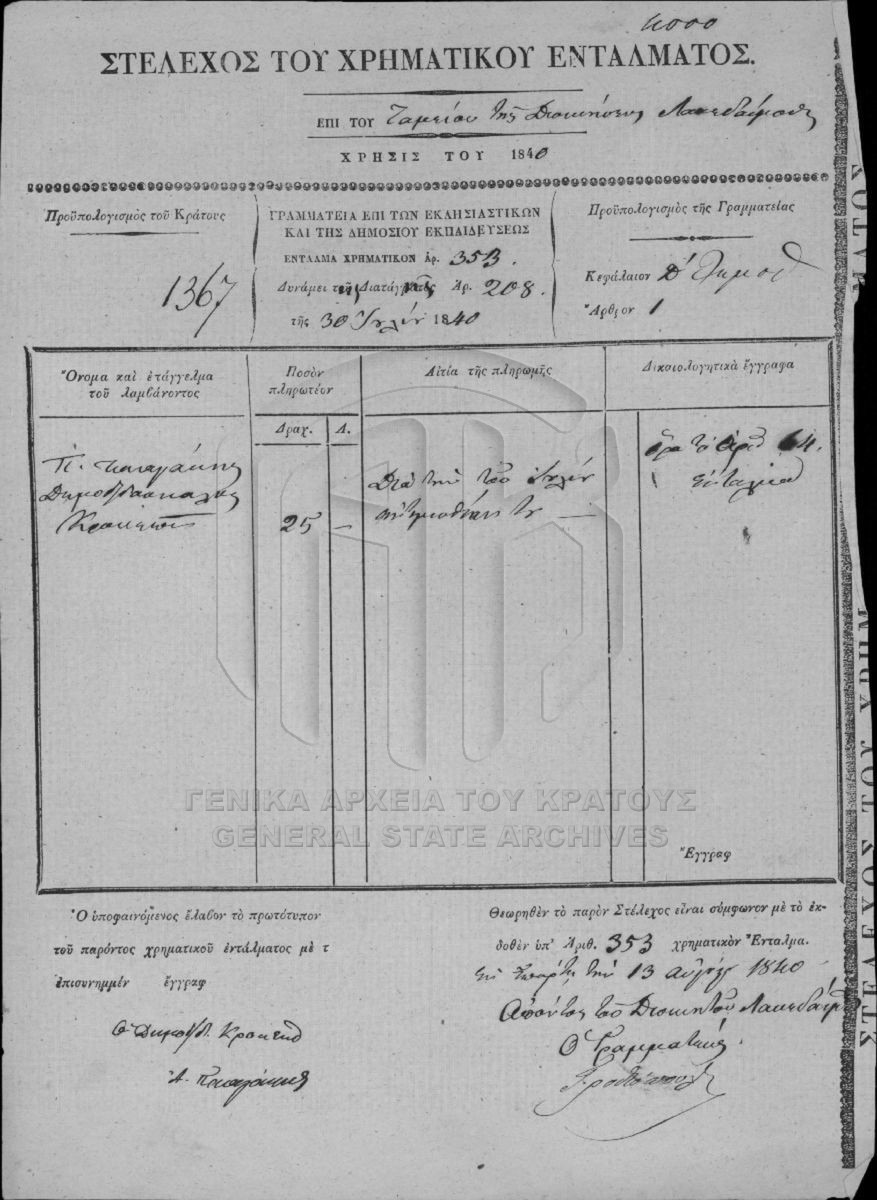 4000
ΣΤΕΛΕΧΟΣ ΤΟΥ ΧΡΗΜΑΤΙΚΟΥ ΕΝΤΑΛΜΑΤΟΣ.
ΕΠΙ ΤΟΥ Ταμείου τῆς Διοικήσεως Λακεδαίμονος
ΧΡΗΣΙΣ ΤΟΥ 1840
Προϋπολογισμὸς τοῦ Κράτους
1367
ΓΡΑΜΜΑΤΕΙΑ ΕΠΙ ΤΩΝ ΕΚΛΗΣΙΑΣΤΙΚΩΝ
ΚΑΙ ΤΗΣ ΔΗΜΟΣΙΟΥ ΕΚΠΑΙΔΕΥΣΕΩΣ
ΕΝΤΑΛΜΑ ΧΡΗΜΑΤΙΚΟΝ ἀρ. 353.
Δυνάμει τῆς Διαταγῆς Ἀρ. 208.
τῆς 30 Ἰουλίου 1840
Προϋπολογισμὸς τῆς Γραμματείας
Κεφάλαιον Δ'
Ἄρθρον 1
Ὄνομα καὶ ἐπάγγελμα
τοῦ λαμβάνοντος
Ποσὸν
πληρωτέον
Αἰτία τῆς πληρωμῆς
Δικαιολογητικὰ ἔγγραφα
Δραχ. Λ.
Δημοδιδάσκαλος
Κροκεῶν
25 —
Διὰ τὸν τοῦ Ἰουλίου
μισθόν του —
ὅρα τὸ ἀριθ 64.
ἔνταλμα
Ἔγγραφ
Ὁ ὑποφαινόμενος ἔλαβον τὸ πρωτότυπον
τοῦ παρόντος χρηματικοῦ ἐντάλματος μὲ τ
ἐπισυνημμέν ἔγγραφ
Ὁ Δημοδ. Κροκεῶν
Θεωρηθὲν τὸ παρὸν Στέλεχος εἶναι σύμφωνον μὲ τὸ ἐκ-
δοθὲν ὑπ' Ἀριθ. 353 χρηματικὸν Ἔνταλμα.
Ἐν Σπάρτῃ τὴν 13 Αὐγούς 1840
Ἀπόντος τοῦ Διοικητοῦ Λακεδαίμ
Ὁ Γραμματεύς
ΓΕΝΙΚΑ ΑΡΧΕΙΑ ΤΟΥ ΚΡΑΤΟΥΣ
GENERAL STATE ARCHIVES
ΣΤΕΛΕΧΟΣ ΤΟΥ ΧΡΗΜ